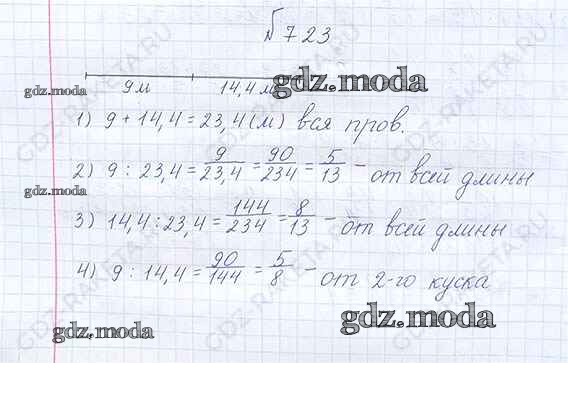 № 723
9м 14,4 м
gdz.moda gdz.moda
1) 9 + 14,4 = 23,4 (м) вся пров.
2) 9 : 23,4 = 9/23,4 = 90/234 = 5/13 - от всей длины
gdz.moda
3) 14,4 : 23,4 = 144/234 = 8/13 - от всей длины
4) 9 : 14,4 = 90/144 = 5/8 - от 2-го куска
gdz.moda gdz.moda
GDZ-RAKETA.RU